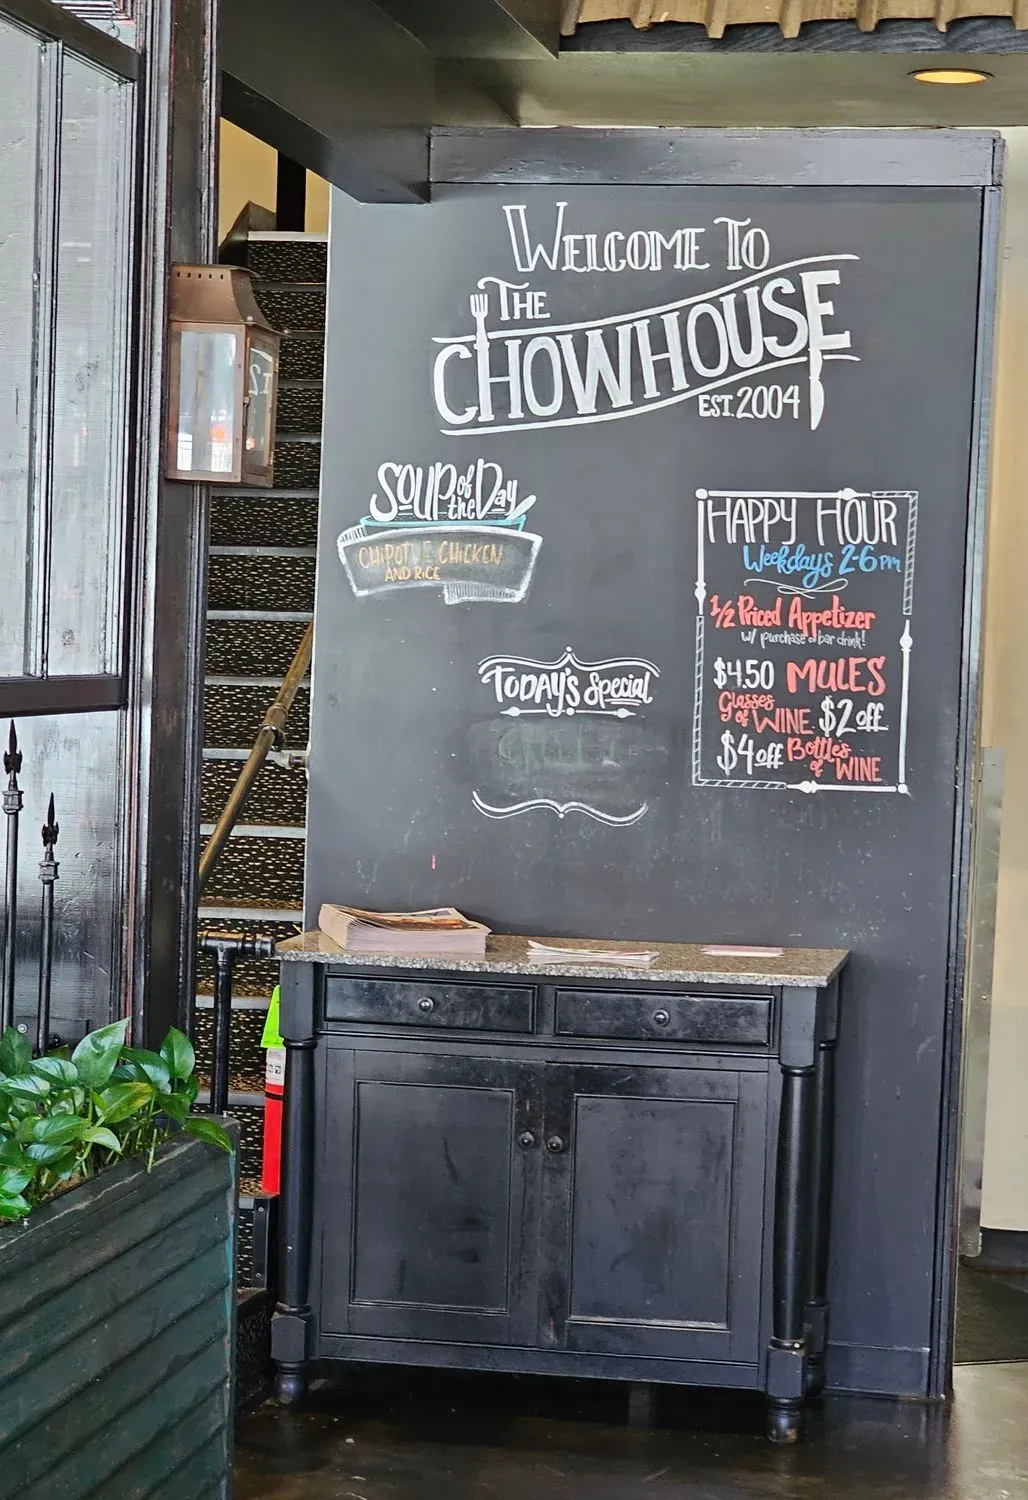 WELCOME TO
THE
CHOWHOUSE
EST. 2004
SOUP of the Day
CHIPOTLE CHICKEN
AND RICE
HAPPY HOUR
Weekdays 2-6 PM
1/2 Priced Appetizer
w/ purchase of bar drink!
$4.50 MULES
Glasses of WINE $2 off
$4 off Bottles of WINE
TODAY'S Special